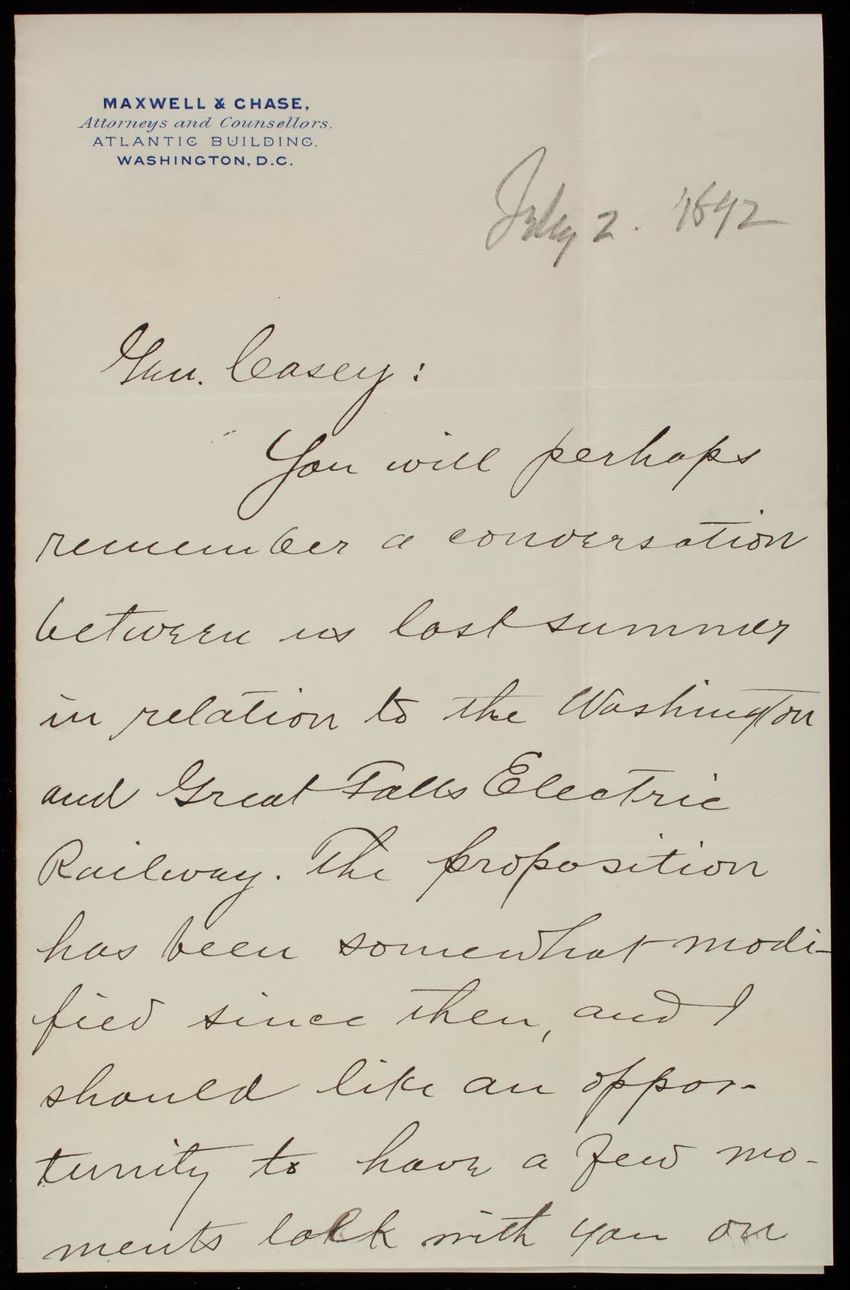 MAXWELL & CHASE,
Attorneys and Counsellors,
ATLANTIC BUILDING.
WASHINGTON, D.C.
July 2. 1892
Gen. Casey:
You will perhaps
remember a conversation
between us last summer
in relation to the Washington
and Great Falls Electric
Railway. The proposition
has been somewhat modi-
fied since then, and I
should like an oppor-
tunity to have a few mo-
ments talk with you on